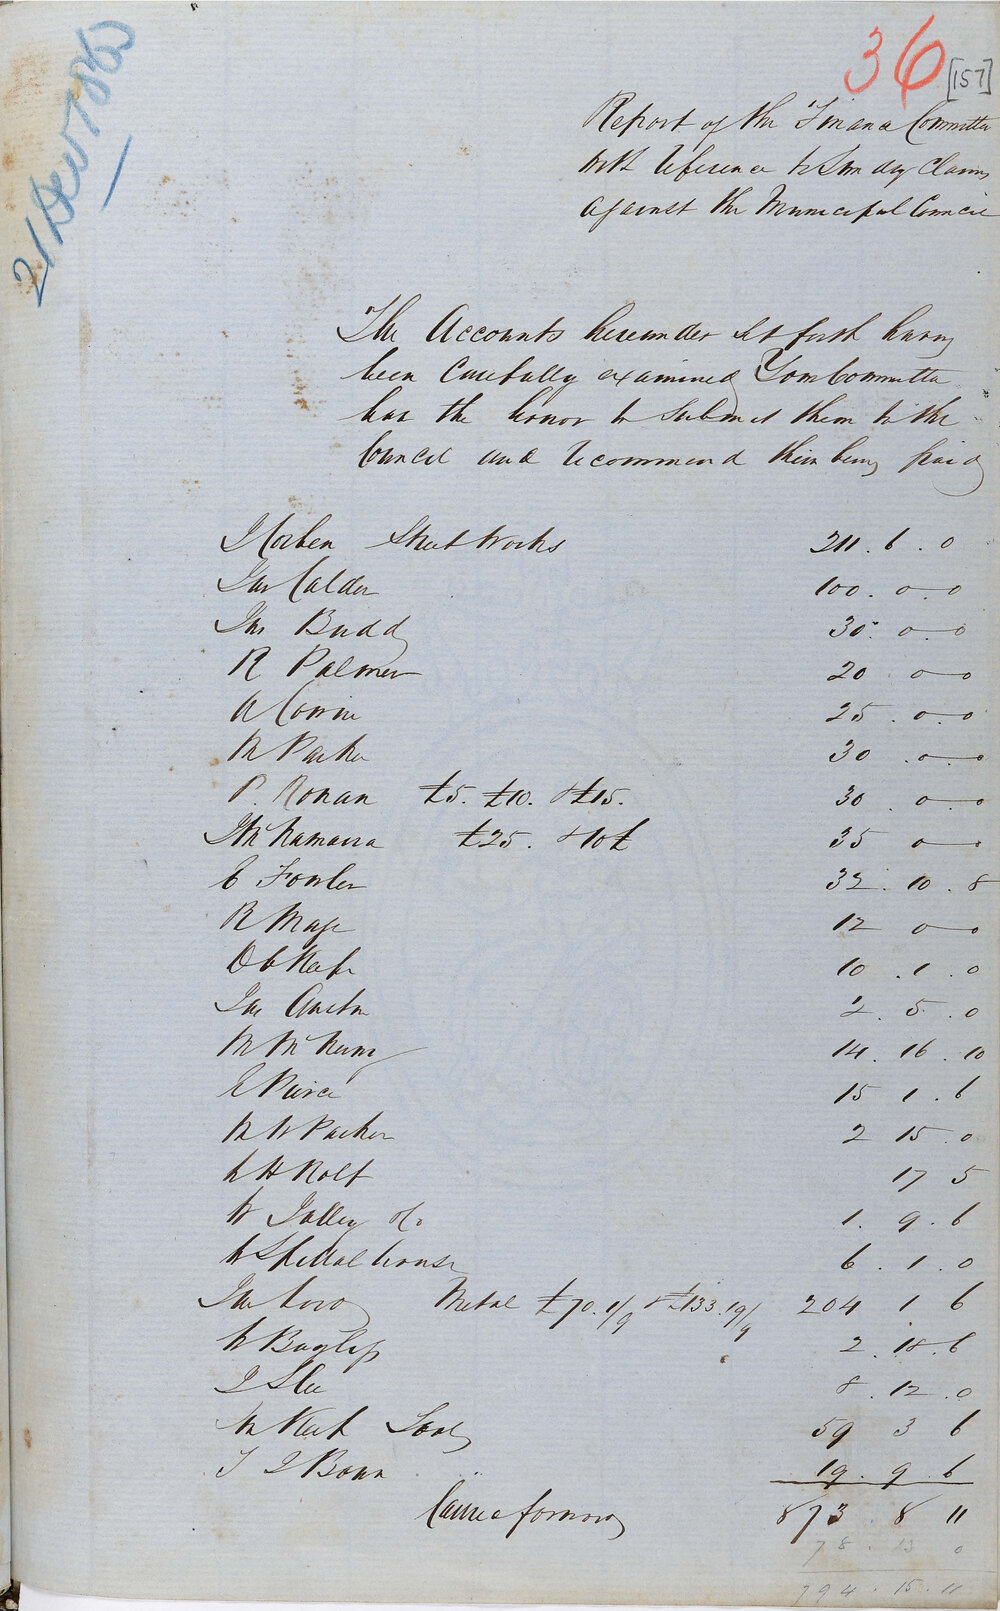 36
[157]
21 Decr 1863
Report of the Finance Committee
with reference to Sundry Claims
against the Municipal Council
The Accounts hereunder set forth having
been Carefully examined Your Committee
has the honor to submit them to the
Council and recommend their being paid
J Corben Street Works 211. 6. 0
Jas Calder 100. 0. 0
Jas Budd 30. 0. 0
R Palmer 20 0 0
A Cowie 25. 0. 0
R Parker 30. 0. 0
P. Ronan £5. £10. & £15. 30. 0 0
J McNamara £25. & 10£ 35 0
E Fowler 32. 10. 8
R Mage 12 0 0
O'Keefe 10. 1. 0
Jas 2. 5. 0
14. 16. 10
E Pierce 15 1. 6
R W Parker 2 15. 0
H Rolt 17 5
W Jolley & Co 1. 9. 6
W Spittal house 6. 1. 0
Jas Metal £70. 1/9 & £133. 19/9 204 1 6
2. 18. 6
J Slee 8. 12. 0
Tools 59 3 6
T J Bown 19. 9. 6
Carried forward 873. 8 11
78. 13 0
794. 15. 11